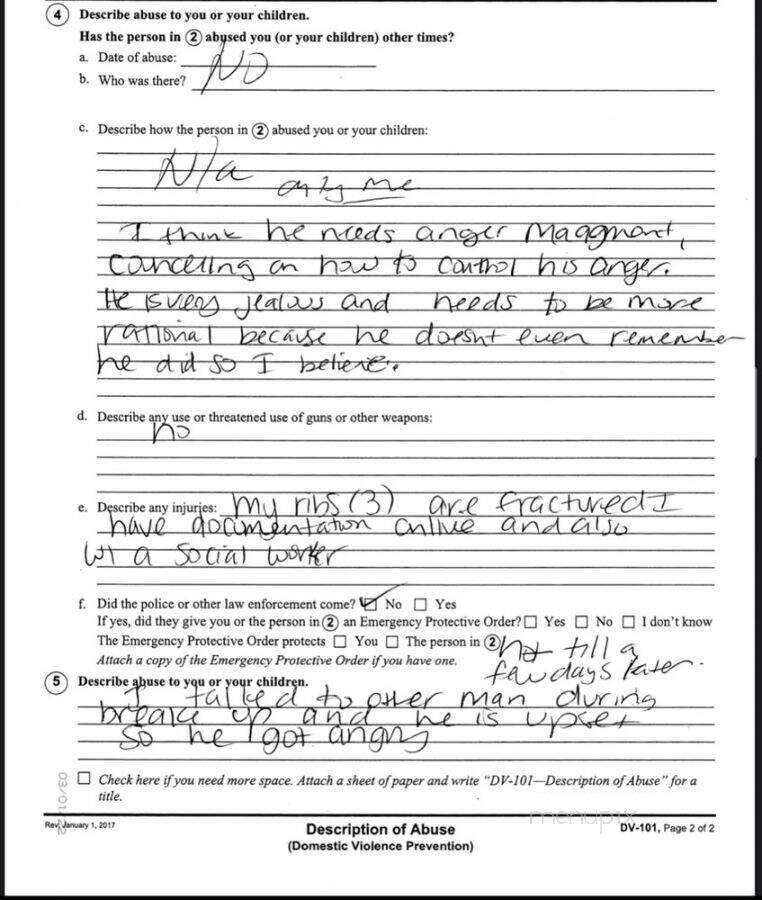 4 Describe abuse to you or your children.
Has the person in 2 abused you (or your children) other times?
a. Date of abuse: NO
b. Who was there?
c. Describe how the person in 2 abused you or your children:
N/a only me
I think he needs anger Maggmant,
Cancelling on how to control his anger.
He is very jealous and needs to be more
rational because he doesnt even remember
he did so I believe.
d. Describe any use or threatened use of guns or other weapons:
no
e. Describe any injuries: My ribs (3) are fractured I
have documentation online and also
w/ a social worker
f. Did the police or other law enforcement come? ☑ No ☐ Yes
If yes, did they give you or the person in 2 an Emergency Protective Order? ☐ Yes ☐ No ☐ I don't know
The Emergency Protective Order protects ☐ You ☐ The person in 2 not till a
Attach a copy of the Emergency Protective Order if you have one. few days later.
5 Describe abuse to you or your children.
I talked to other man during
break up and he is upset
so he got angry
☐ Check here if you need more space. Attach a sheet of paper and write "DV-101—Description of Abuse" for a
title.
Rev. January 1, 2017
Description of Abuse
(Domestic Violence Prevention)
DV-101, Page 2 of 2
menupix